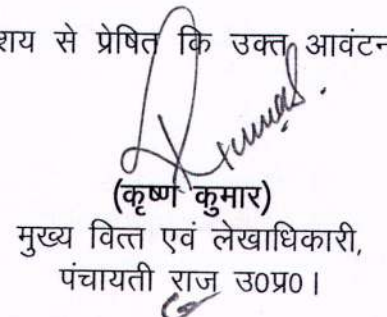 शय से प्रेषित कि उक्त आवंटन
Kumar.
(कृष्ण कुमार)
मुख्य वित्त एवं लेखाधिकारी,
पंचायती राज उ०प्र०।